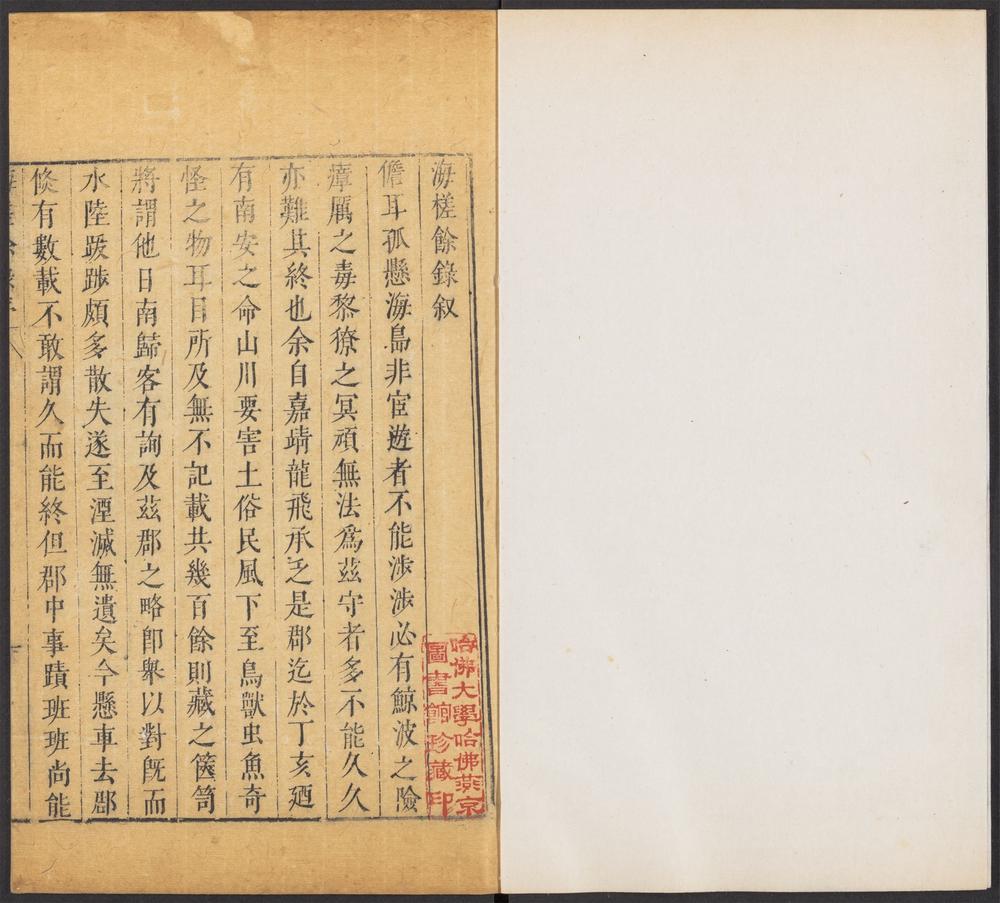 海槎餘錄叙
儋耳孤懸海島非宦遊者不能涉涉必有鯨波之險
瘴厲之毒黎獠之冥頑無法爲茲守者多不能久久
亦難其終也余自嘉靖龍飛承乏是郡迄於丁亥廼
有南安之命山川要害土俗民風下至鳥獸虫魚奇
怪之物耳目所及無不記載共幾百餘則藏之篋笥
將謂他日南歸客有詢及茲郡之略卽舉以對旣而
水陸跋踄頗多散失遂至湮滅無遺矣今懸車去郡
倐有數載不敢謂久而能終但郡中事蹟班班尚能
哈佛大學哈佛燕京
圖書館珍藏印